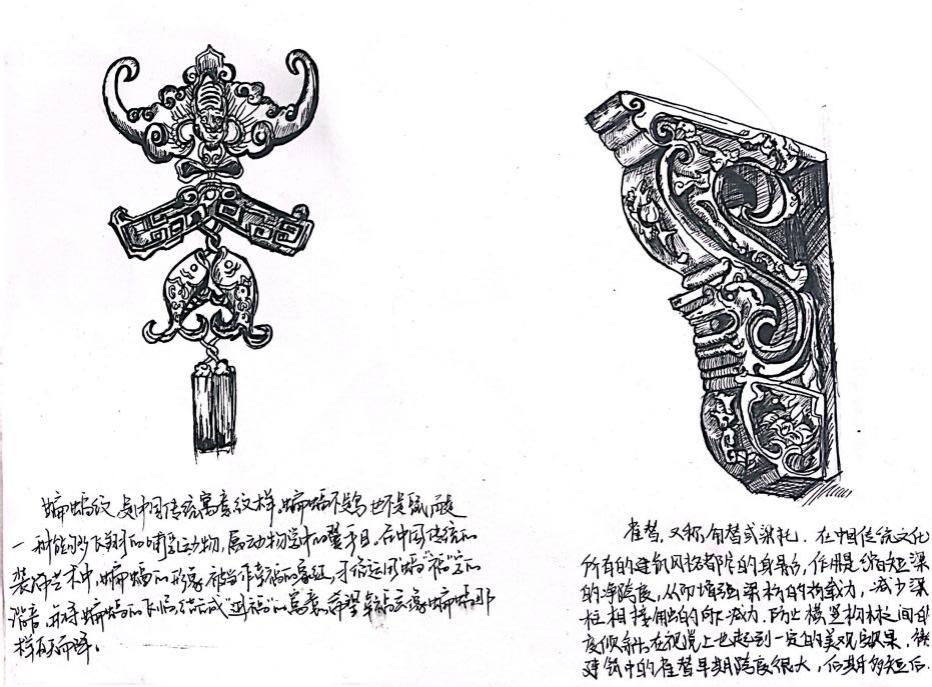 蝙蝠纹是中国传统寓意纹样,蝙蝠不是鸟也不是鼠而是
一种能够飞翔的哺乳动物,属动物学中的翼手目,在中国传统的
装饰艺术中,蝙蝠的形象被当作幸福的象征,习俗运用"蝠""福"字的
谐音,并将蝙蝠的飞临结成"进福"的寓意,希望幸福会像蝙蝠那
样自天而降。
雀替,又称角替或梁托.在中国传统文化
所有的建筑风格都它的身影,作用是缩短梁
的净跨度,从而增强梁枋的荷载力,减少梁
柱相接触的向下剪力,防止横竖构材之间的
度倾斜,在视觉上也起到一定的美观效果,
建筑中的雀替早期跨度很大,后期的短后